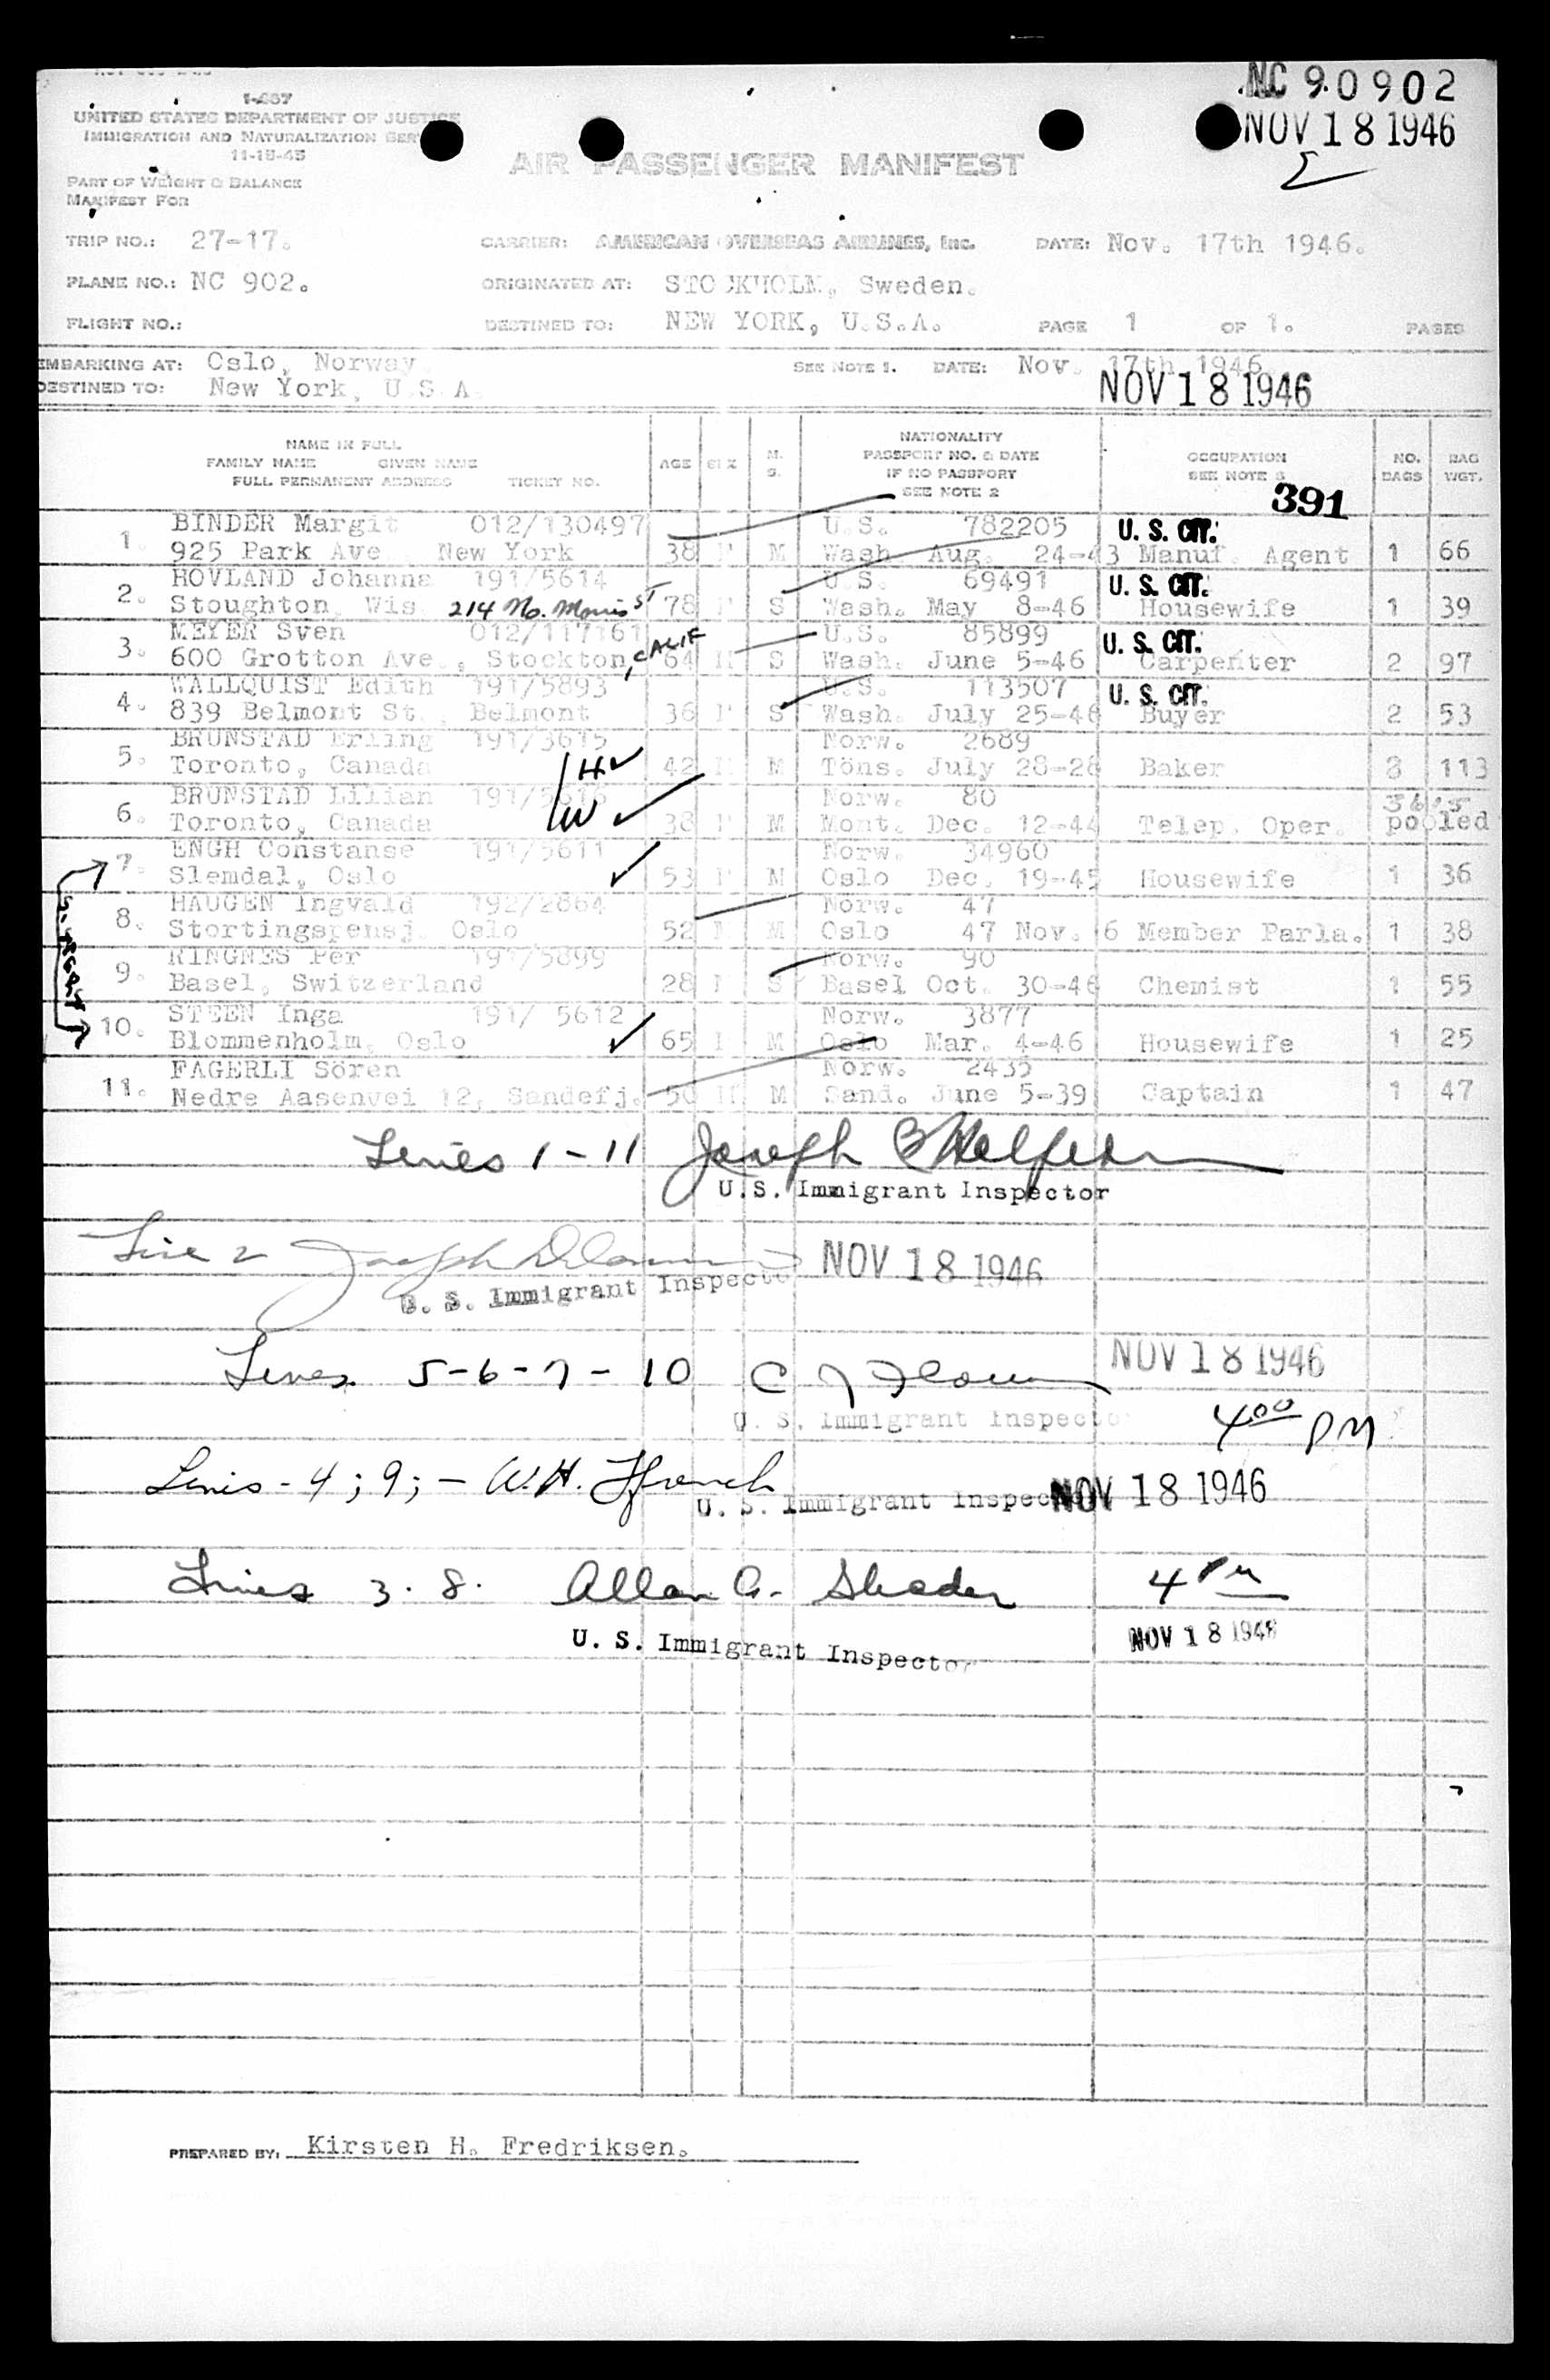 NC 90902
I-467
UNITED STATES DEPARTMENT OF JUSTICE
NOV 18 1946
IMMIGRATION AND NATURALIZATION SER
11-15-45
AIR PASSENGER MANIFEST
PART OF WEIGHT & BALANCE
MANIFEST FOR
TRIP NO.: 27-17. CARRIER: AMERICAN OVERSEAS AIRLINES, Inc. DATE: Nov. 17th 1946.
PLANE NO.: NC 902. ORIGINATED AT: STOCKHOLM, Sweden.
FLIGHT NO.: DESTINED TO: NEW YORK, U.S.A. PAGE 1 OF 1. PAGES
EMBARKING AT: Oslo, Norway SEE NOTE 1. DATE: Nov. 17th 1946.
DESTINED TO: New York, U.S.A. NOV 18 1946
NAME IN FULL
FAMILY NAME GIVEN NAME
FULL PERMANENT ADDRESS TICKET NO.
AGE SEX M. S.
NATIONALITY
PASSPORT NO. & DATE
IF NO PASSPORT
SEE NOTE 2
OCCUPATION
SEE NOTE 3
NO. BAGS
BAG WGT.
391
BINDER Margit 012/130497 U.S. 782205 U. S. CIT.
1. 925 Park Ave. New York 38 F M Wash. Aug. 24-43 Manuf. Agent 1 66
HOVLAND Johanna 191/5614 U.S. 69491 U. S. CIT.
2. Stoughton, Wis. 214 No. Morris ST 78 F S Wash. May 8-46 Housewife 1 39
MEYER Sven 012/117161 U.S. 85899 U. S. CIT.
3. 600 Grotton Ave., Stockton, CALIF 64 M S Wash. June 5-46 Carpenter 2 97
WALLQUIST Edith 191/5893 U.S. 113507 U. S. CIT.
4. 839 Belmont St., Belmont 36 F S Wash. July 25-46 Buyer 2 53
BRUNSTAD Erling 191/3615 Norw. 2689
5. Toronto, Canada H 42 M M Töns. July 28-28 Baker 3 113
BRUNSTAD Lilian 191/5616 Norw. 80
6. Toronto, Canada W 38 F M Mont. Dec. 12-44 Telep. Oper. pooled
ENGH Constanse 191/5611 Norw. 34960
7. Slemdal, Oslo 53 F M Oslo Dec. 19-45 Housewife 1 36
HAUGEN Ingvald 192/2864 Norw. 47
8. Stortingspensj. Oslo 52 M M Oslo 47 Nov. 6 Member Parla. 1 38
RINGNES Per 191/5899 Norw. 90
9. Basel, Switzerland 28 M S Basel Oct. 30-46 Chemist 1 55
STEEN Inga 191/ 5612 Norw. 3877
10. Blommenholm, Oslo 65 F M Oslo Mar. 4-46 Housewife 1 25
FAGERLI Sören Norw. 2435
11. Nedre Aasenvei 12, Sandefj. 50 M M Sand. June 5-39 Captain 1 47
Lines 1-11 Joseph
U.S. Immigrant Inspector
Line 2 Joseph NOV 18 1946
U. S. Immigrant Inspector
Lines 5-6-7-10 NOV 18 1946
U. S. Immigrant Inspector 4 00 PM
Lines - 4; 9; - W.H. Ffrench
U. S. Immigrant Inspector NOV 18 1946
Lines 3. 8. Allan G. Shader 4 PM
U. S. Immigrant Inspector NOV 18 1946
PREPARED BY: Kirsten H. Fredriksen.